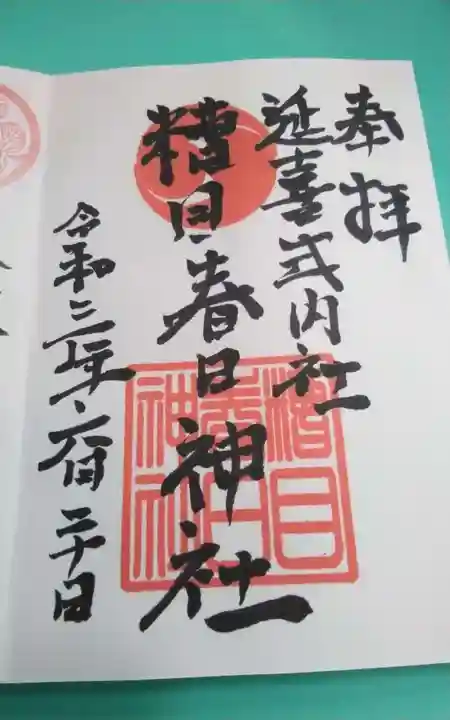 奉拝
延喜式内社
糟目春日神社
令和三年六月二十日
糟目春日神社